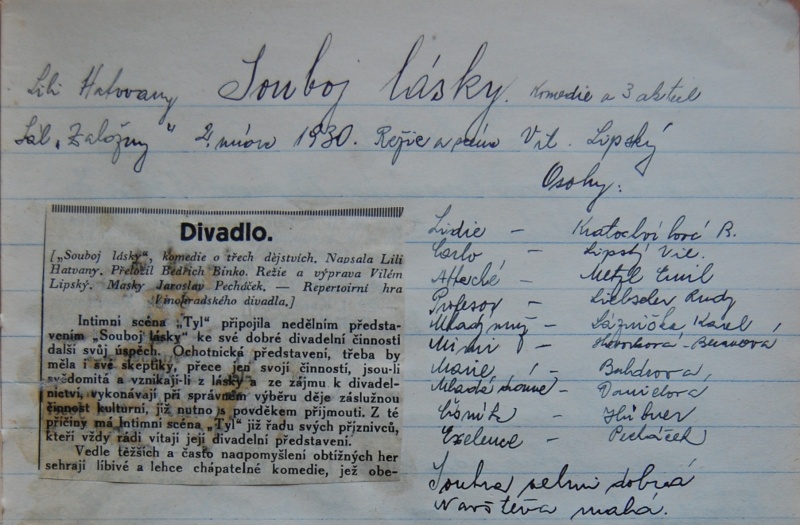 Lili Hatvany Souboj lásky. Komedie o 3 aktech
Sál „Založny" 2. února 1930. Režie a scéna Vil. Lipský
Osoby:
Divadlo.
[„Souboj lásky", komedie o třech dějstvích. Napsala Lili
Hatvany. Přeložil Bedřich Binko. Režie a výprava Vilém
Lipský. Masky Jaroslav Pecháček. — Repertoirní hra
Vinohradského divadla.]
Intimní scéna „Tyl" připojila nedělním předsta-
vením „Souboj lásky" ke své dobré divadelní činnosti
další svůj úspěch. Ochotnická představení, třeba by
měla i své skeptiky, přece jen svojí činností, jsou-li
svědomitá a vznikají-li z lásky a ze zájmu k divadel-
nictví, vykonávají při správném výběru děje záslužnou
činnost kulturní, již nutno s povděkem přijmouti. Z té
příčiny má Intimní scéna „Tyl" již řadu svých příznivců,
kteří vždy rádi vítají její divadelní představení.
Vedle těžších a často naopmyšlení obtížných her
sehrají líbivé a lehce chápatelné komedie, jež obe-
Lidie — Kratochvílová B.
Carlo — Lipský Vil.
Attaché — Metzl Emil
Profesor — Liebscher Rudy
Mladý muž — Karel
Mimi —
Marie —
Mladá — Davidova
— Hübner
Exelence — Pecháček
Souhra velmi dobrá
Navštěva malá.